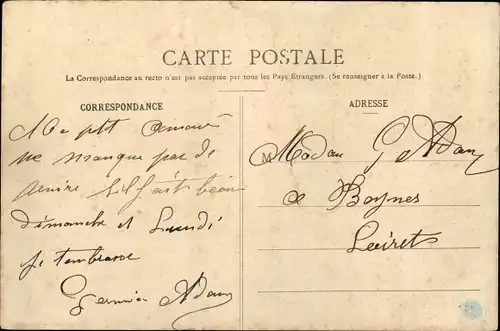 CARTE POSTALE
La Correspondance au recto n'est pas acceptée par tous les Pays Etrangers. (Se renseigner à la Poste.)
CORRESPONDANCE
ADRESSE
Mo ptit amour
ne manque pas de
venire sil fait beau
dimanche et Lundi
je tembrasse
Germin Adam
Madam G Adam
a Boynes
Loiret